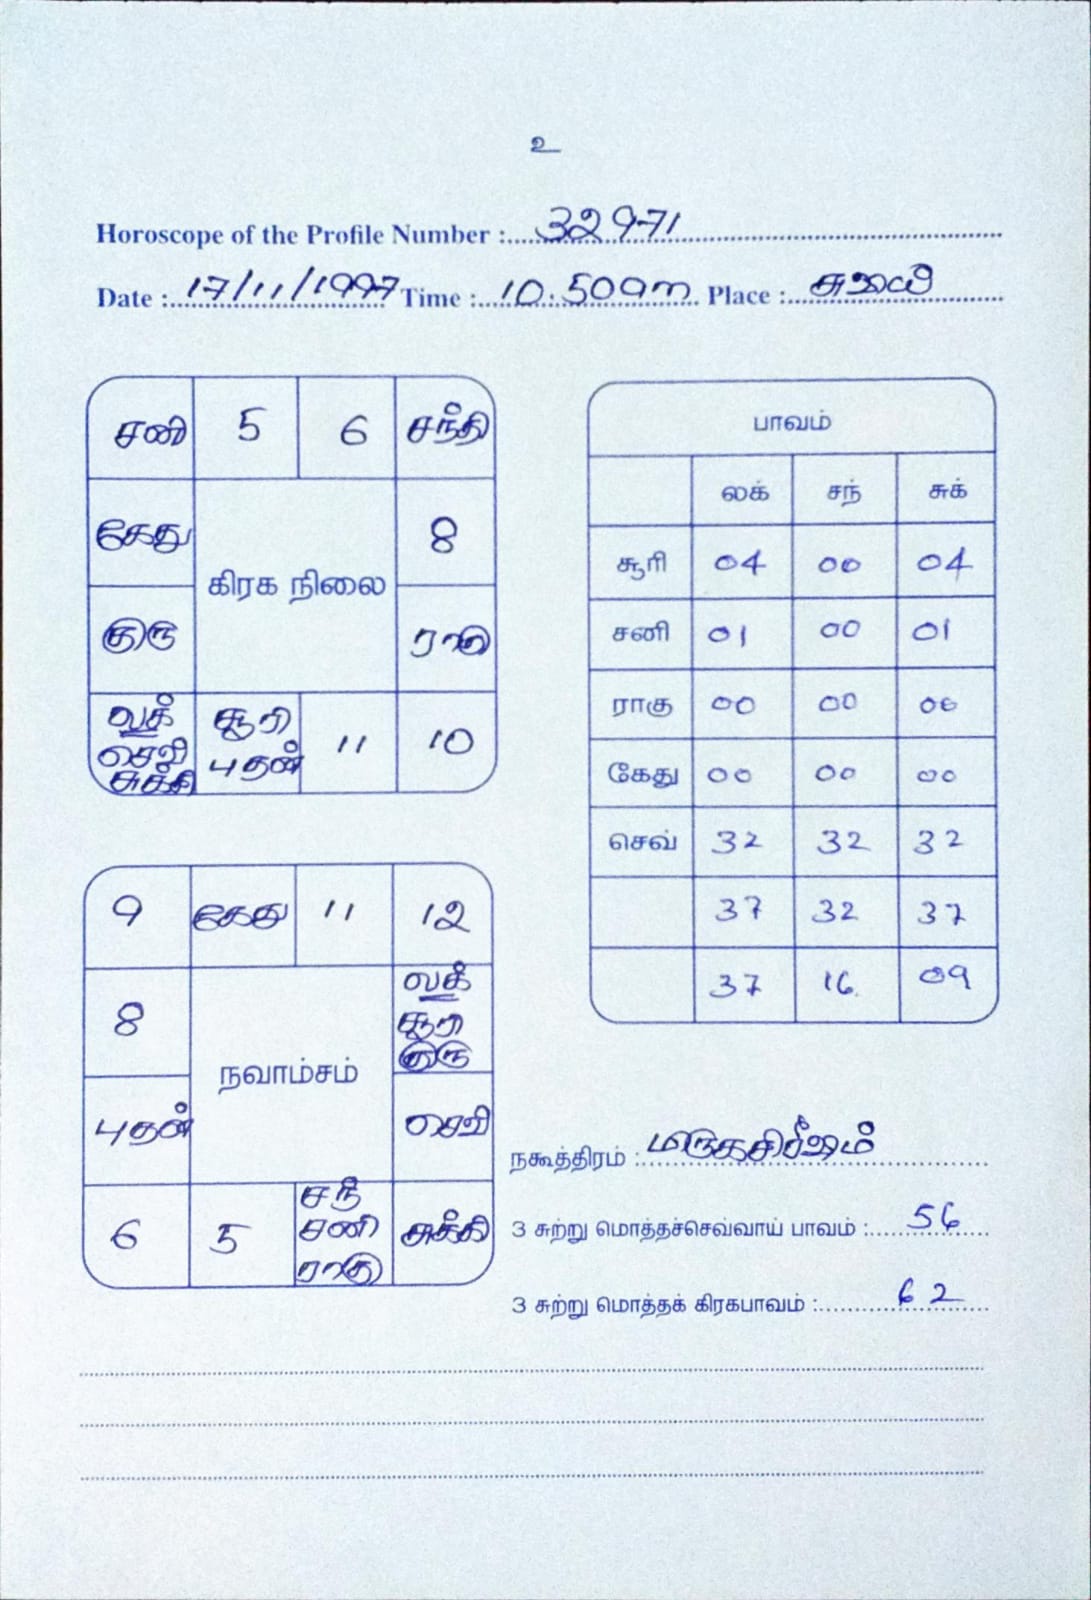 உ
Horoscope of the Profile Number : 32971
Date : 17/11/1997 Time : 10.50am Place :
சனி 5 6 சந்தி
கேது 8
கிரக நிலை
குரு ராகு
லக் சூரி 11 10
செவ் புதன்
சுக்கி
பாவம்
லக் சந் சுக்
சூரி 04 00 04
சனி 01 00 01
ராகு 00 00 00
கேது 00 00 00
செவ் 32 32 32
37 32 37
37 16 09
9 கேது 11 12
8 லக்
சூரி
குரு
நவாம்சம்
புதன் செவ்
6 5 சந் சுக்கி
சனி
ராகு
நக்ஷத்திரம் : மிருகசிரீஷம்
3 சுற்று மொத்தச்செவ்வாய் பாவம் : 56
3 சுற்று மொத்தக் கிரகபாவம் : 62